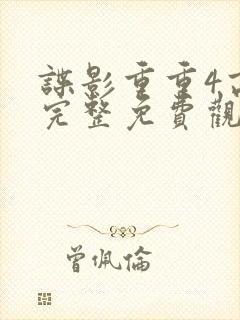 諜影重重4高
完整免費觀
曾佩倫